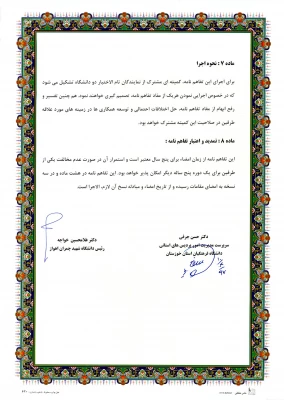 ماده ۷ : نحوه اجرا
برای اجرای این تفاهم نامه، کمیته ای مشترک از نمایندگان تام الاختیار دو دانشگاه تشکیل می شود
که در خصوص اجرایی نمودن هریک از مفاد تفاهم نامه، تصمیم گیری خواهند نمود. هم چنین تفسیر و
رفع ابهام از مفاد تفاهم نامه، حل اختلافات احتمالی و توسعه همکاری ها در زمینه های مورد علاقه
طرفین در صلاحیت این کمیته مشترک خواهد بود.
ماده ۸ : تمدید و اعتبار تفاهم نامه :
این تفاهم نامه از زمان امضاء برای پنج سال معتبر است و استمرار آن در صورت عدم مخالفت یکی از
طرفین برای یک دوره پنج ساله دیگر امکان پذیر خواهد بود. این تفاهم نامه در هشت ماده و در سه
نسخه به امضای مقامات رسیده و از تاریخ امضاء و مبادله نسخ آن لازم الاجرا است.
دکتر حسن حرفی
سرپرست مدیریت امور پردیس های استانی
دانشگاه فرهنگیان استان خوزستان
دکتر غلامحسین خواجه
رئیس دانشگاه شهید چمران اهواز